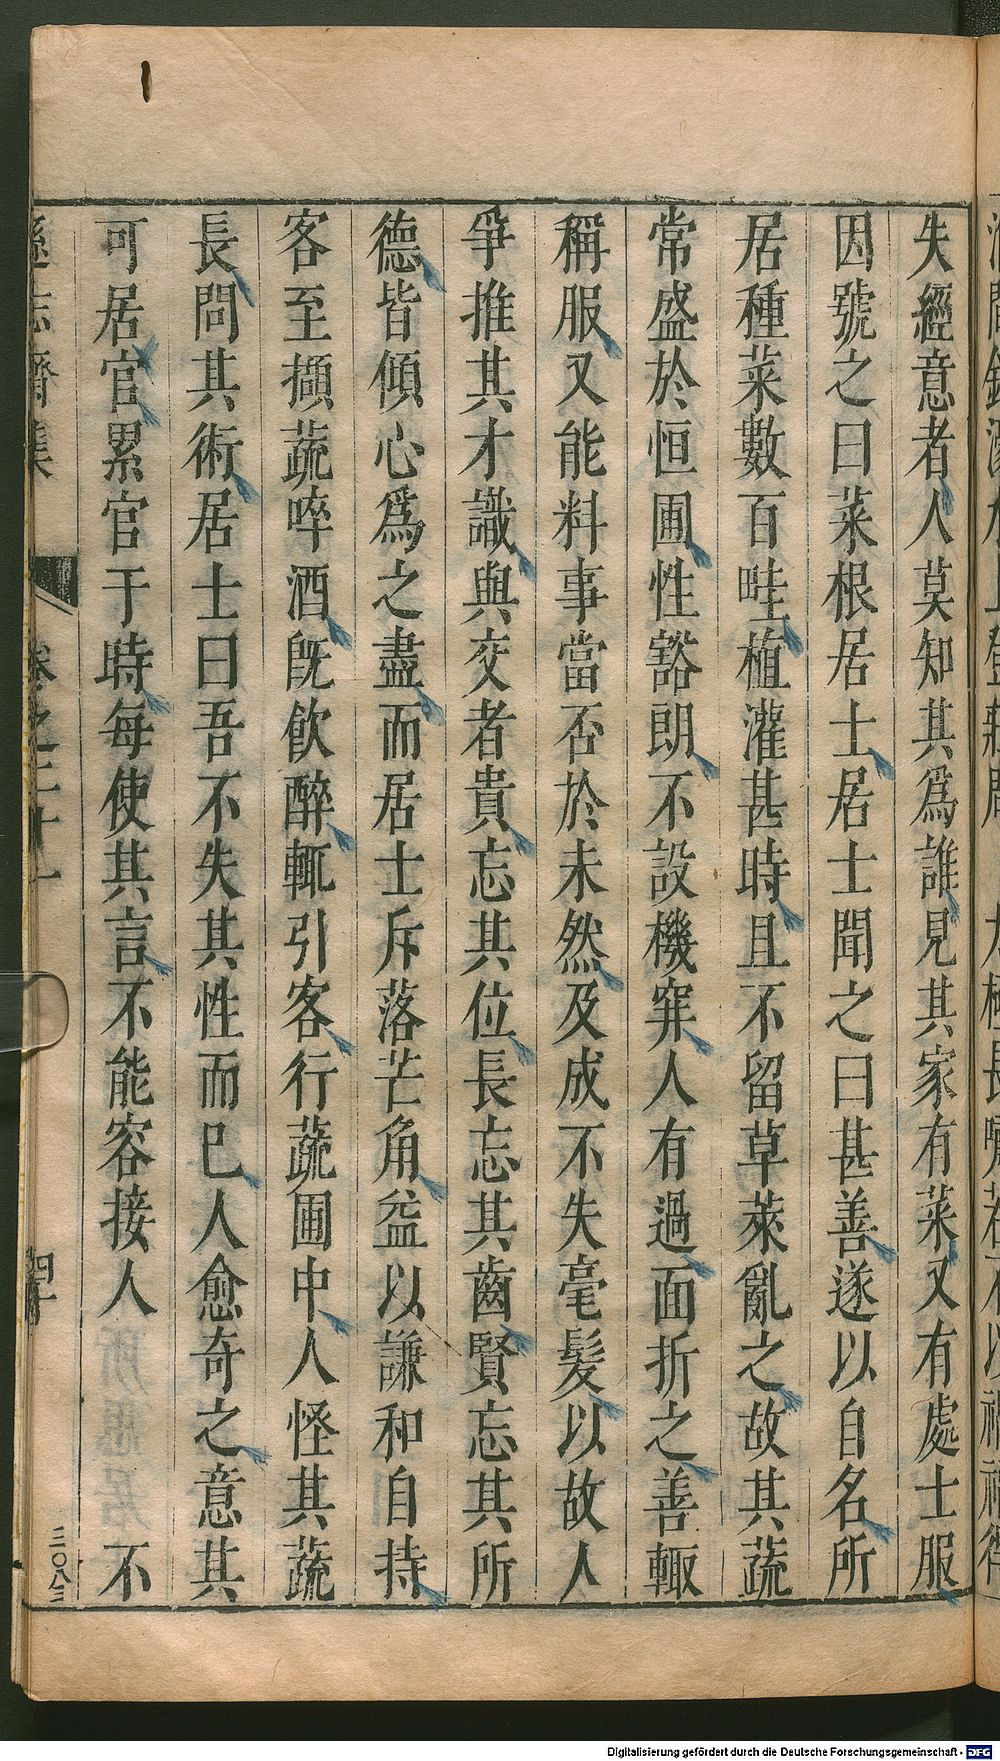 失經意者人莫知其爲誰見其家有菜又有處士服
因號之曰菜根居士居士聞之曰甚善遂以自名所
居種菜數百畦植灌甚時且不留草萊亂之故其蔬
常盛於恒圃性豁朗不設機穽人有過面折之善輙
稱服又能料事當否於未然及成不失毫髮以故人
爭推其才識與交者貴忘其位長忘其齒賢忘其所
德皆傾心爲之盡而居士斥落芒角益以謙和自持
客至擷蔬啐酒旣飮醉輒引客行蔬圃中人怪其蔬
長問其術居士曰吾不失其性而巳人愈奇之意其
可居官累官于時每使其言不能容接人 不
遜志齋集 卷之二十一 四十 三〇八三
Digitalisierung gefördert durch die Deutsche Forschungsgemeinschaft - DFG